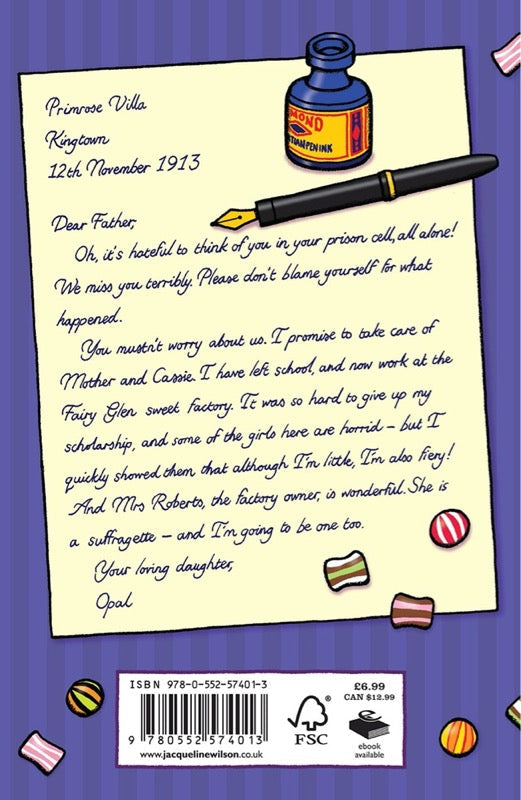 Primrose Villa
Kingtown
12th November 1913
Dear Father,
Oh, it's hateful to think of you in your prison cell, all alone!
We miss you terribly. Please don't blame yourself for what
happened.
You mustn't worry about us. I promise to take care of
Mother and Cassie. I have left school, and now work at the
Fairy Glen sweet factory. It was so hard to give up my
scholarship, and some of the girls here are horrid – but I
quickly showed them that although I'm little, I'm also fiery!
And Mrs Roberts, the factory owner, is wonderful. She is
a suffragette – and I'm going to be one too.
Your loving daughter,
Opal
MOND
TAIN PEN INK
ISBN 978-0-552-57401-3
9 780552 574013
www.jacquelinewilson.co.uk
®
FSC
£6.99
CAN $12.99
e
ebook
available